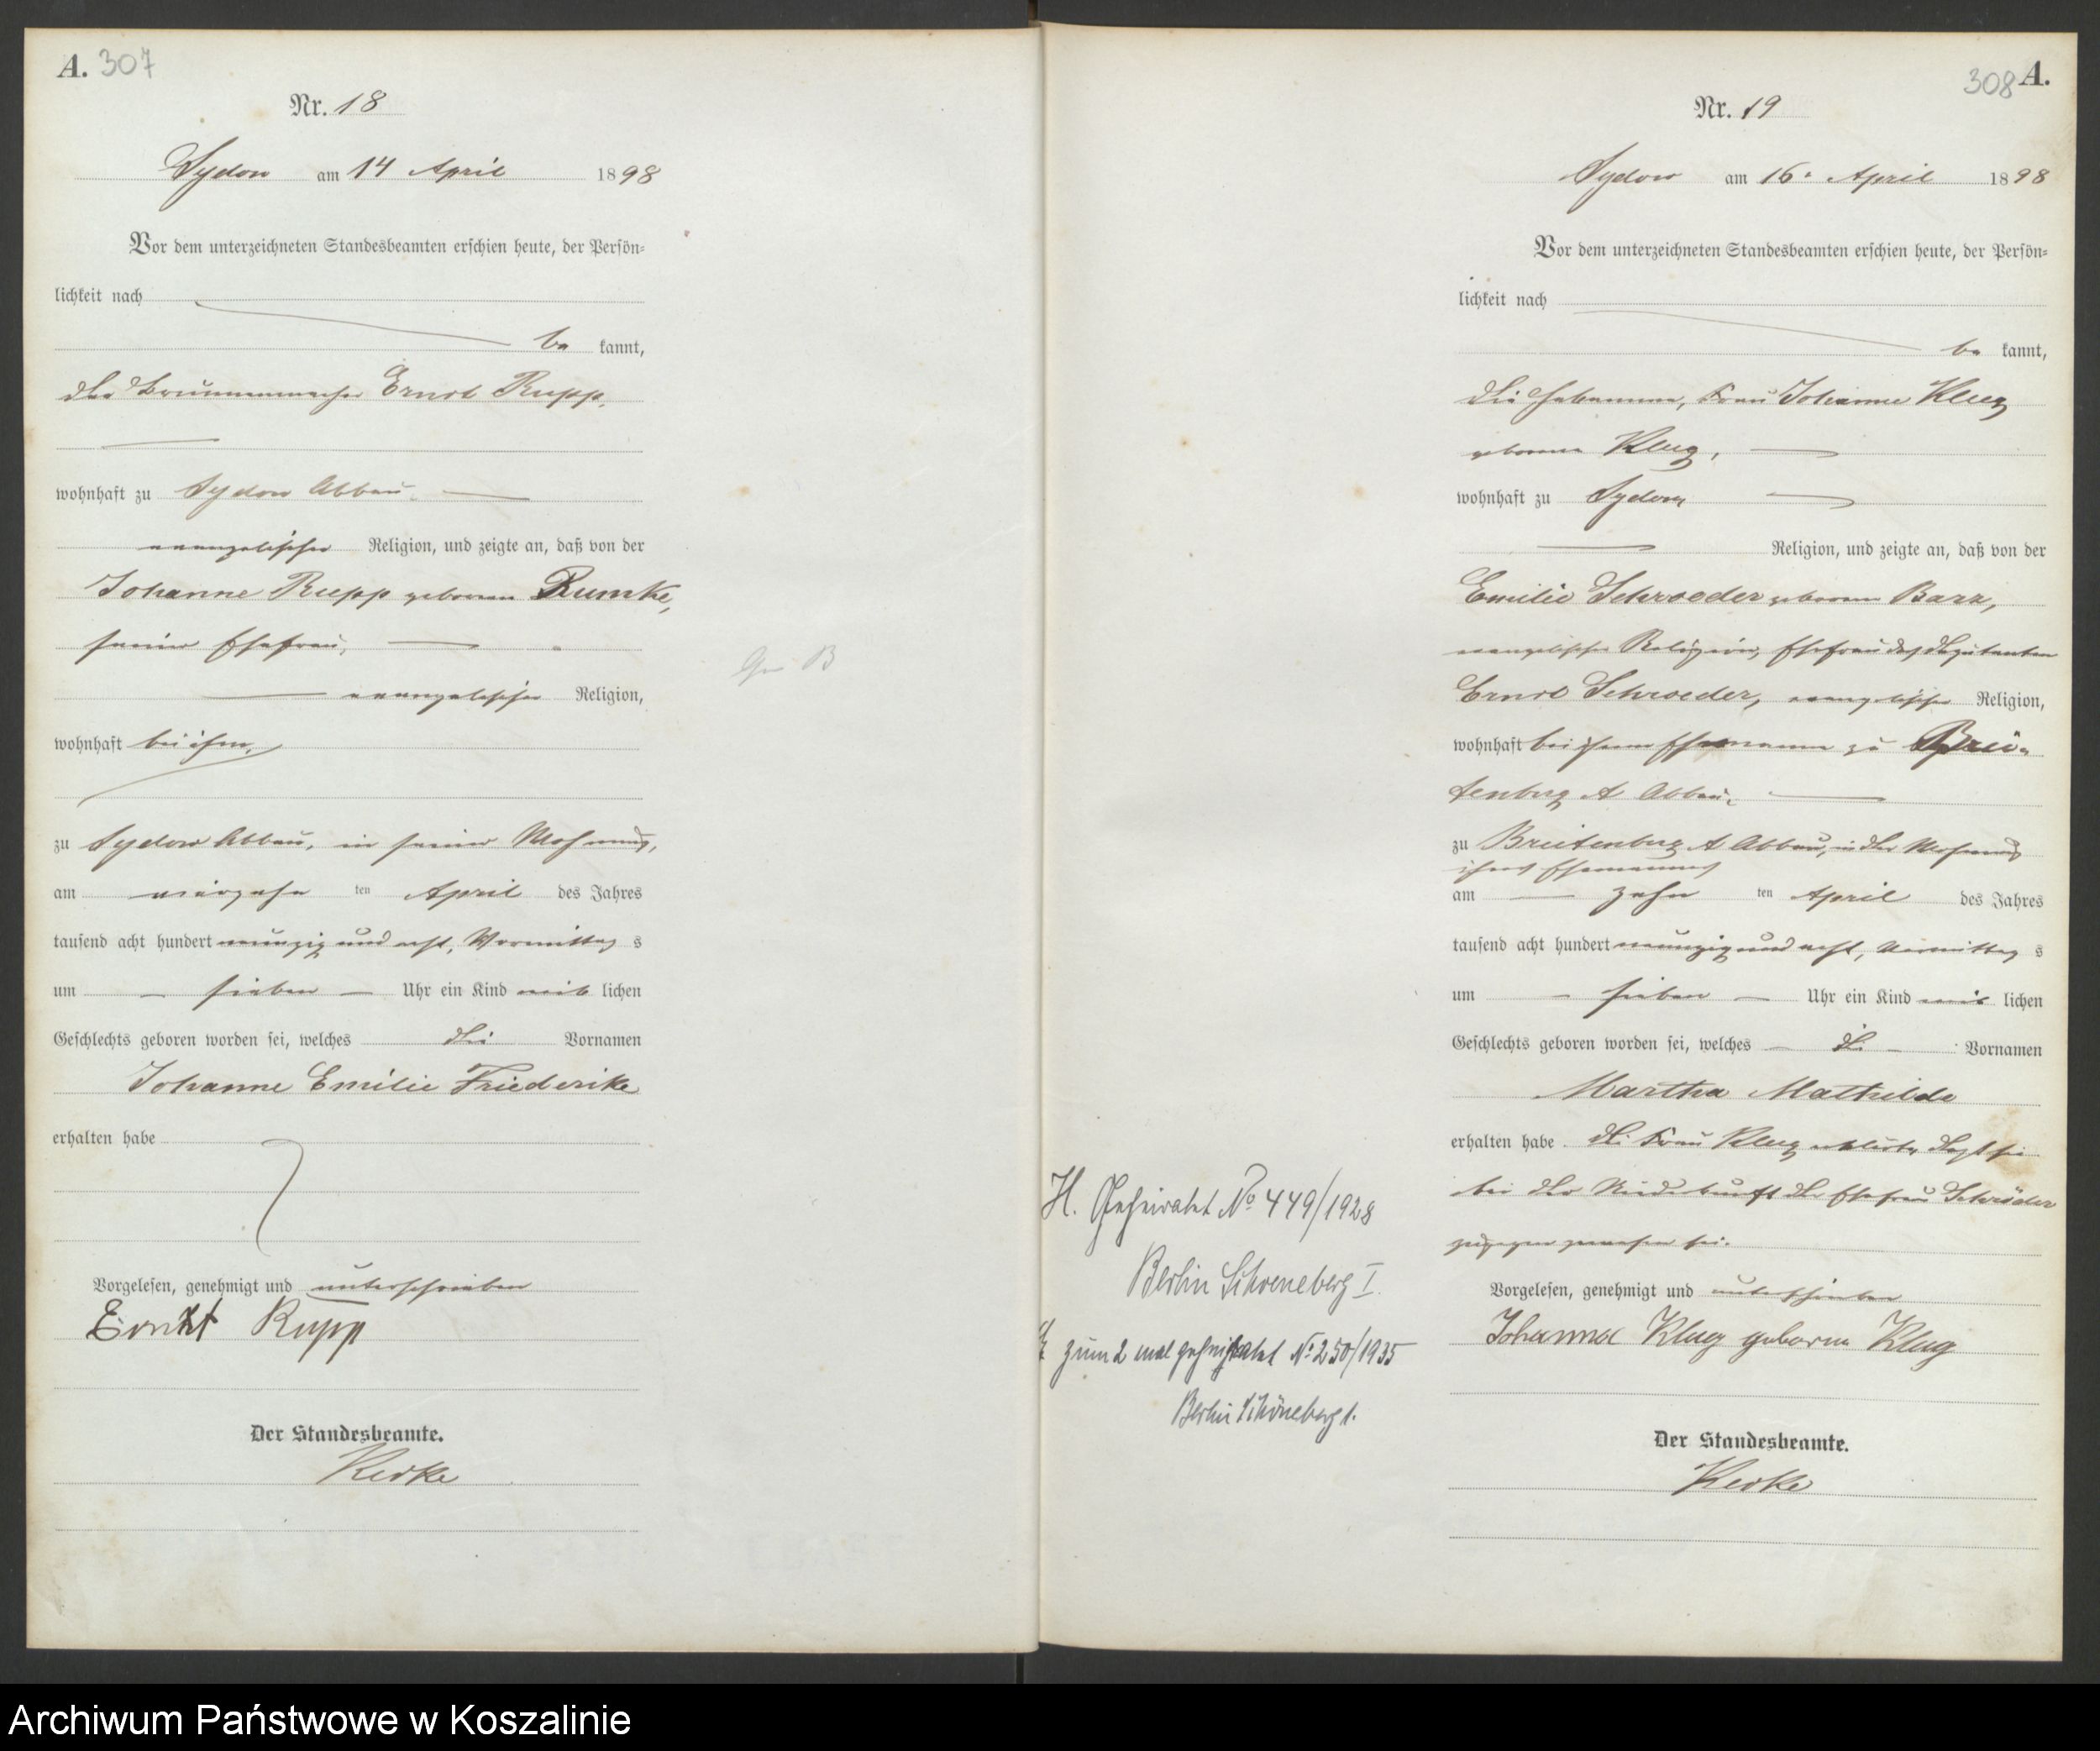 A. 307
Nr. 18
Sydow am 14 April 1898
Vor dem unterzeichneten Standesbeamten erschien heute, der Persön-
lichkeit nach
be kannt,
der Brunnenmacher Ernst Rupp,
wohnhaft zu Sydow Abbau
evangelischer Religion, und zeigte an, daß von der
Johanne Rupp geborenen Rumke,
seiner Ehefrau,
evangelischer Religion,
wohnhaft bei ihm,
zu Sydow Abbau, in seiner Wohnung,
am vierzehn ten April des Jahres
tausend acht hundert neunzig und acht, Vormittag s
um sieben Uhr ein Kind weib lichen
Geschlechts geboren worden sei, welches die Vornamen
Johanne Emilie Friederike
erhalten habe
Vorgelesen, genehmigt und unterschrieben
Ernst Rupp
Der Standesbeamte.
Kerke
308 A.
Nr. 19
Sydow am 16. April 1898
Vor dem unterzeichneten Standesbeamten erschien heute, der Persön-
lichkeit nach
be kannt,
die Hebamme, Frau Johanne Klug
geborene Klug,
wohnhaft zu Sydow
Religion, und zeigte an, daß von der
Emilie Schroeder geborenen Barz,
evangelischer Religion, Ehefrau des Deputanten
Ernst Schroeder, evangelischer Religion,
wohnhaft bei ihrem Ehemanne zu Brei-
tenberg A Abbau,
zu Breitenberg A Abbau, in der Wohnung
ihres Ehemannes
am zehn ten April des Jahres
tausend acht hundert neunzig und acht, Vormittag s
um sieben Uhr ein Kind weib lichen
Geschlechts geboren worden sei, welches die Vornamen
Martha Mathilde
erhalten habe. Die Frau Klug erklärte, daß sie
bei der Niederkunft der Ehefrau Schröder
zugegen gewesen sei.
Vorgelesen, genehmigt und unterschrieben
Johanna Klug geborne Klug
Der Standesbeamte.
Kerke
H. Geheiratet No 449/1928
Berlin Schoeneberg I.
zum 2 mal geheiratet No 250/1935
Berlin Schöneberg 1.
Archiwum Państwowe w Koszalinie